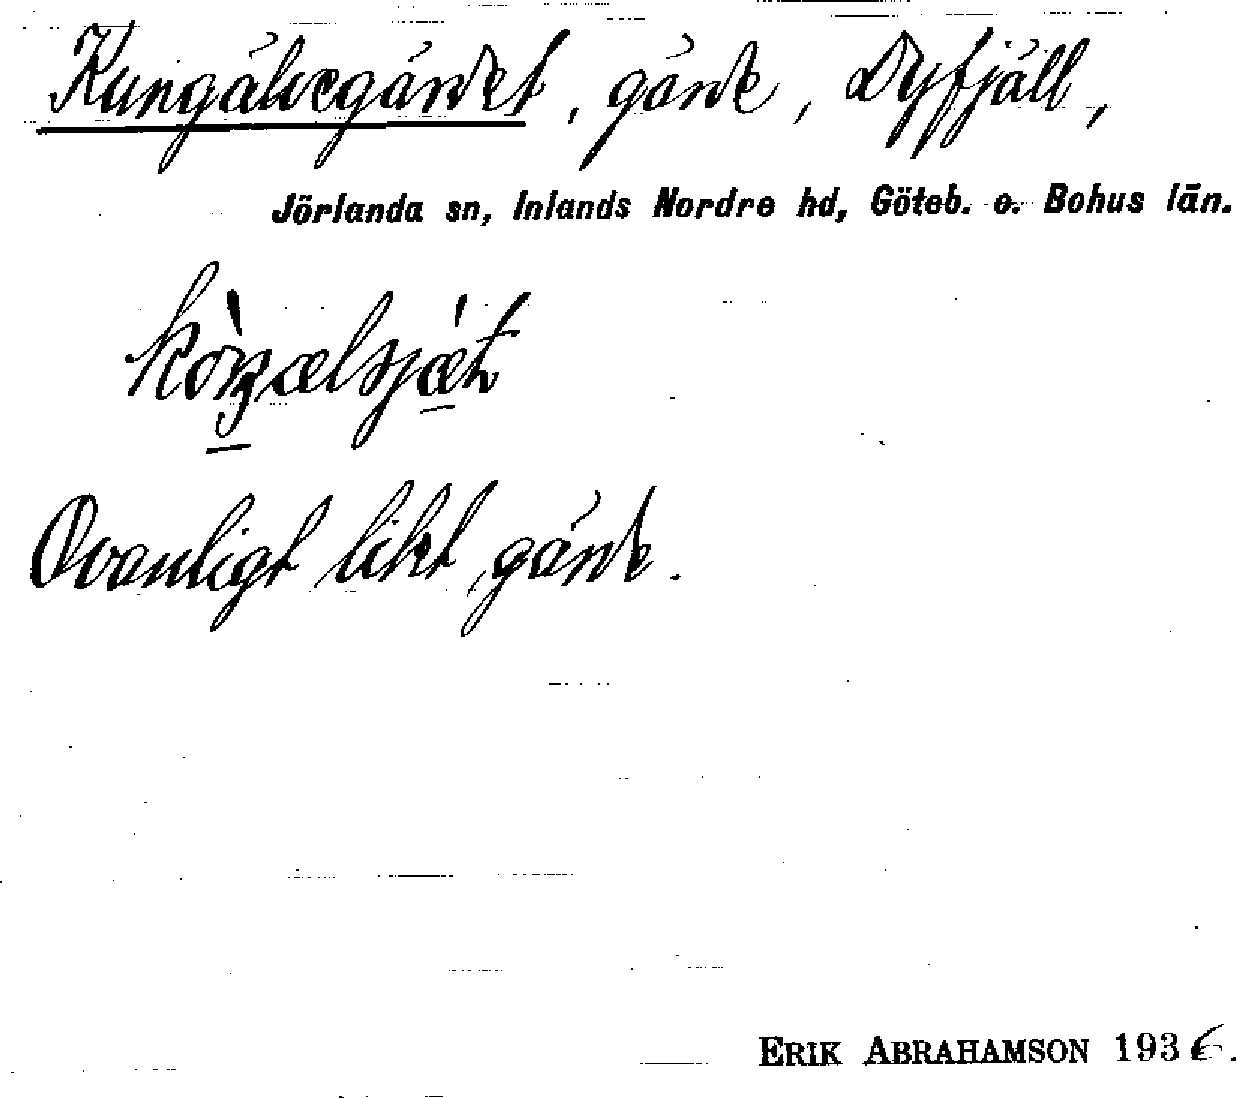 Kungälvegärdet, gärde, Dyfjäll,
Jörlanda sn, Inlands Nordre hd, Göteb. o. Bohus län.
Ovanligt likt gärde.
ERIK ABRAHAMSON 1936.